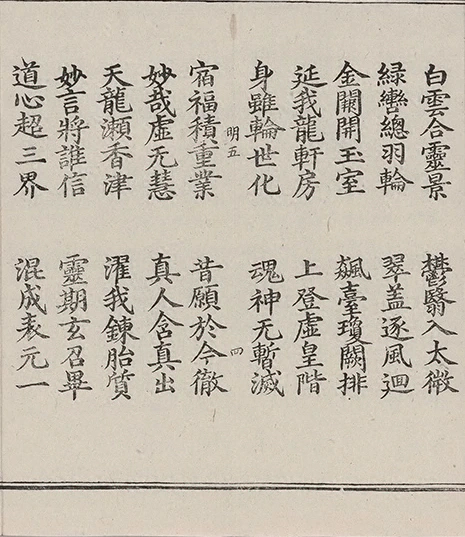 白雲合靈景　鬱翳入太微
綠轡總羽輪　翠盖逐風迴
金闕開玉室　飆臺瓊闕排
延我龍軒房　上登虛皇階
身雖輪世化　魂神无暫滅
明五　四
宿福積重業　昔願於今徹
妙哉虛无慧　真人含真出
天龍瀬香津　濯我鍊胎質
妙言將誰信　靈期玄召畢
道心超三界　混成表元一